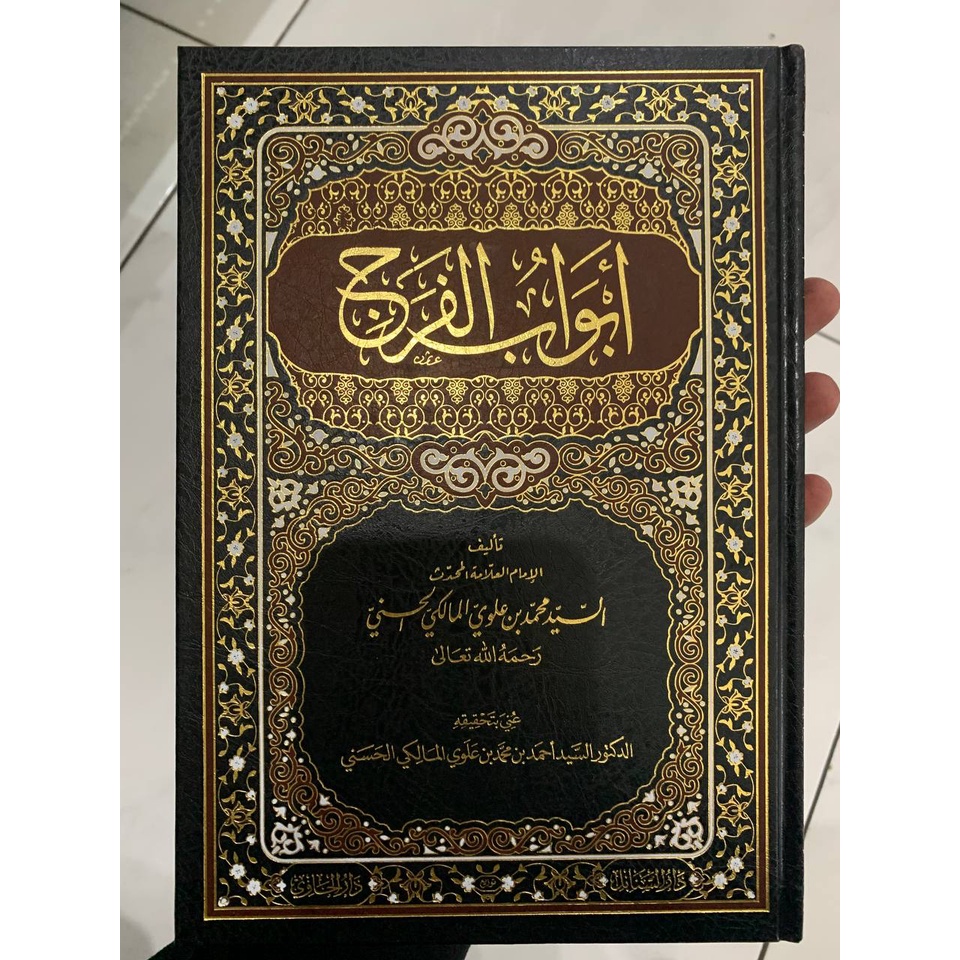 أبواب الفرج
تأليف
الإمام العلامة المحدث
السيد محمد بن علوي المالكي الحسني
رحمه الله تعالى
عني بتحقيقه
الدكتور السيد أحمد بن محمد بن علوي المالكي الحسني
دار الشمائل